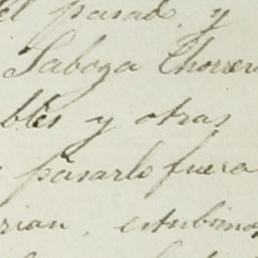 el pasado y
Saboga Chorrer
bles y otras
pasarlo fuera
rian, estubimo